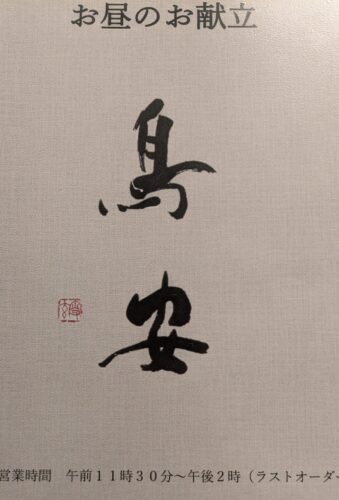 お昼のお献立
鳥
安
営業時間 午前11時30分～午後2時（ラストオーダー